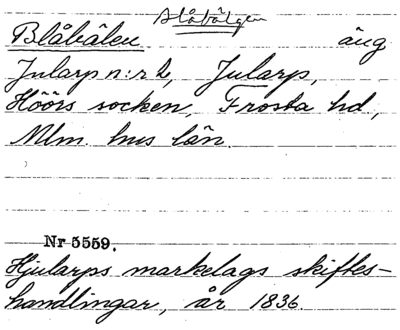 Blåbälgen
Blåbälen äng
Jularp n:r 2, Jularp,
Höörs socken, Frosta hd,
Mlm. hus län.
Nr 5559.
Hjularps markelags skiftes-
handlingar, år 1836.